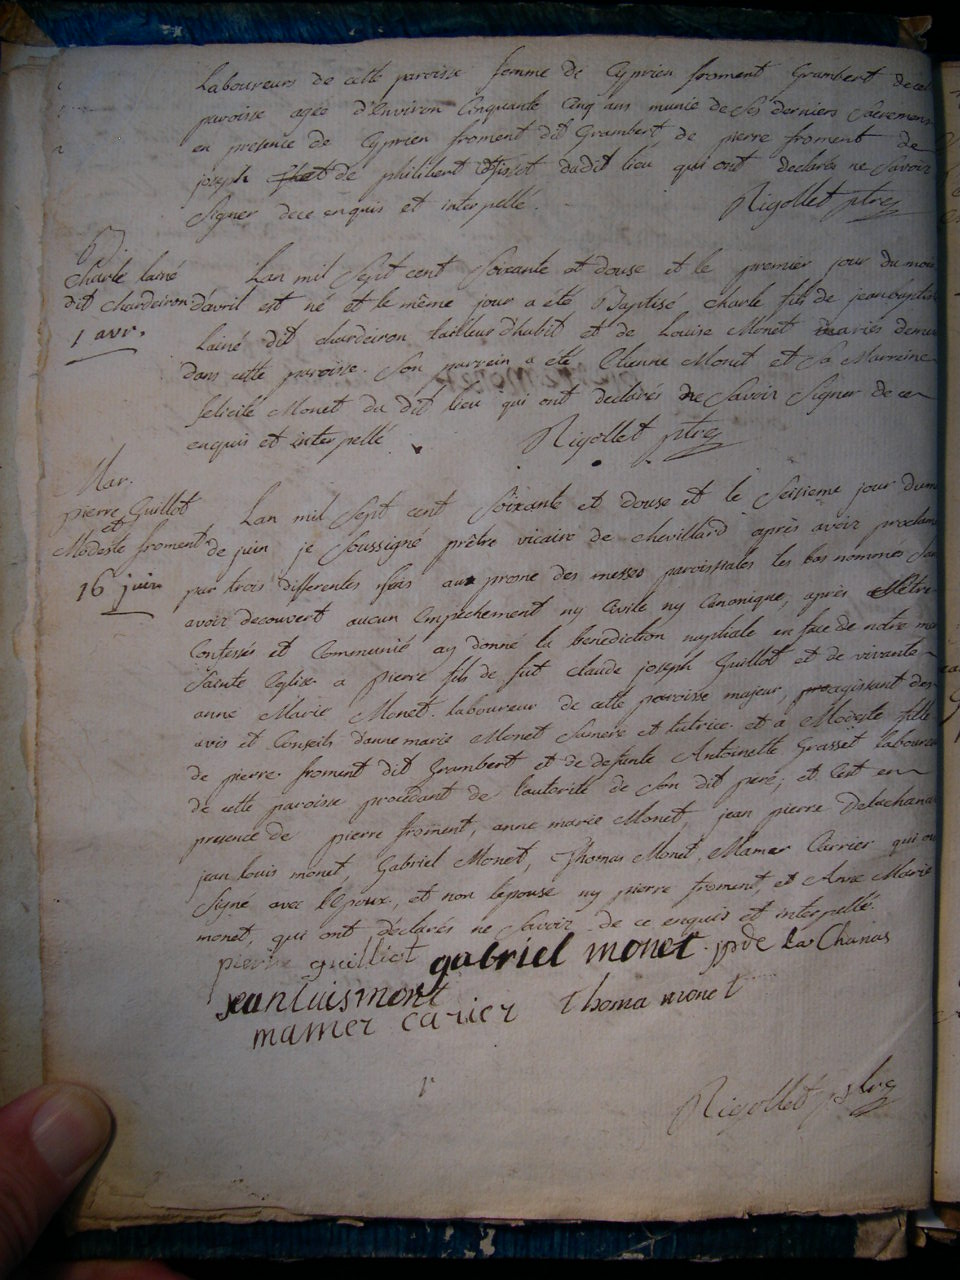 Laboureurs de cette paroisse femme de Cyprien froment Grambert de cet
paroisse agée d'environ Cinquante Cinq ans munie de Ses derniers Sacremens
en presence de Cyprien froment dit Grambert de pierre froment de
joseph de philibert dudit lieu qui ont declarés ne Savoir
Signer de ce enquis et interpellé. Rigollet ptre
B.
Charle lainé
dit chardeiron
1 avr.
Lan mil Sept cent Soixante et douse et le premier jour du mois
d'avril est né et le même jour a été Baptisé Charle fils de jean baptiste
Lainé dit chardeiron tailleur d'habit et de Louise Monet mariés demeu
dans cette paroisse. Son parrein a été Etienne Monet et Sa Marreine
felicité Monet du dit lieu qui ont declarés ne Savoir Signer de ce
enquis et interpellé Rigollet ptre
Mar.
pierre Guillot
et
Modeste froment
16 juin
Lan mil Sept cent Soixante et douse et le Seisieme jour du m
de juin je Soussigné prêtre vicaire de chevillard après avoir proclam
par trois differentes fois aux prosne des messes paroissiales les bas nommés San
avoir decouvert aucun Empêchement ny Civile ny Canonique, après Sêtre
Confessés et Communié ay donné la benediction nuptiale en face de notre me
Sainte Eglise a pierre fils de fut Claude joseph Guillot et de vivante
anne Marie Monet laboureur de cette paroisse majeur, agissant des
avis et Conseils d'anne marie Monet Sa mere et tutrice et a Modeste fille
de pierre froment dit Grambert et de defunte Antoinette Grasset laboureu
de cette paroisse procedant de l'autorité de Son dit peré, et C'est en
presence de pierre froment, anne marie Monet, jean pierre Delachana
jean louis monet, Gabriel Monet, Thomas Monet, Mamer Carrier qui on
Signé avec l'Epoux, et non l'epouse ny pierre froment, et Anne Marie
monet, qui ont déclarés ne Savoir de ce enquis et interpellé.
pierre guilliot gabriel monet jp de La Chanas
jean luis mont
mamer carier thoma monet
Rigollet ptre